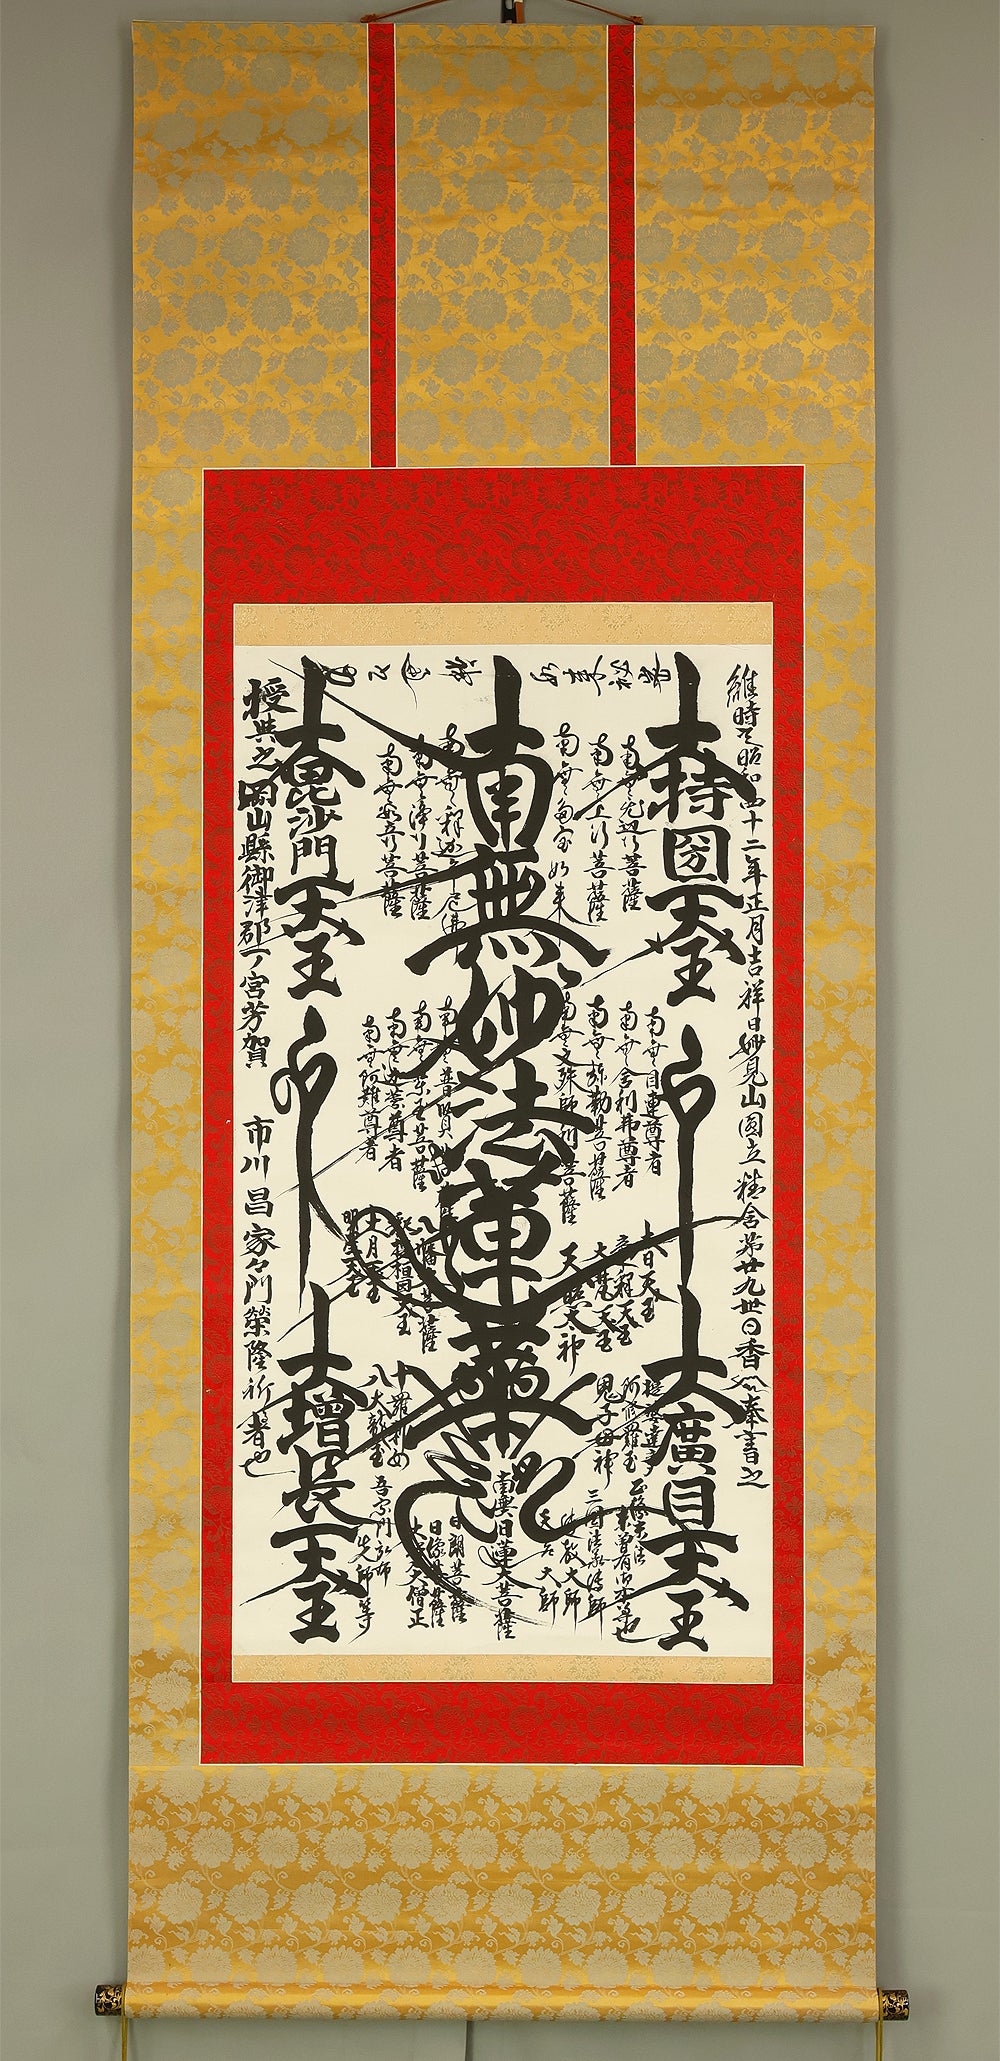 維時昭和四十二年正月吉祥日妙見山圓立精舎第廿九世日香奉書之
大持国天王
大廣目天王
南無無辺行菩薩
南無上行菩薩
南無多宝如来
南無妙法蓮華経
南無釈迦牟尼佛
南無浄行菩薩
南無安立行菩薩
大毘沙門天王
大増長天王
南無目連尊者
南無舎利弗尊者
南無弥勒菩薩
南無文殊師利菩薩
南無普賢菩薩
南無薬王菩薩
南無迦葉尊者
南無阿難尊者
大日天王
大梵天王
天照太神
八幡大菩薩
大月天王
明星天王
提婆達多
阿修羅王
鬼子母神
十羅刹女
八大龍王
三国法
伝教大師
天台大師
南無日蓮大菩薩
日朗菩薩
日像菩薩
大覚大僧正
吾宗門弘布
先師等
授与之岡山縣御津郡一ノ宮芳賀
市川昌家
門榮隆
者也